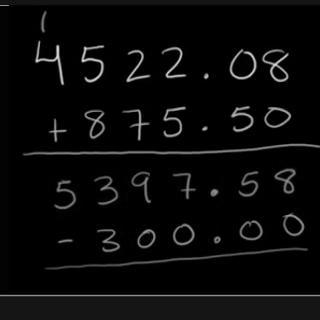 1
4522.08
+ 875.50
5397.58
- 300.00